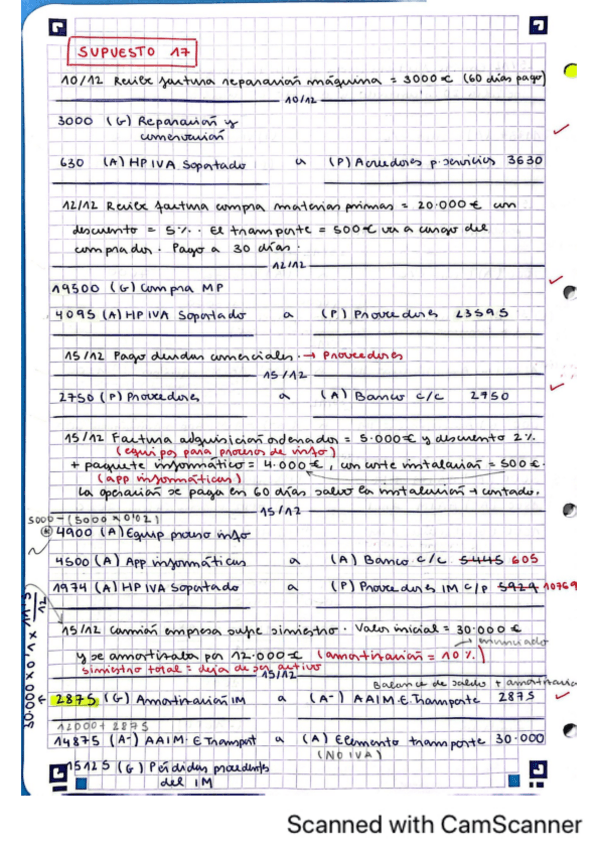 SUPUESTO 17
10/12 Recibe factura reparación máquina = 3000€ (60 días pago)
10/12
3000 (G) Reparación y
conservación
630 (A) HP IVA Soportado a (P) Acreedores p. servicios 3630
12/12 Recibe factura compra materias primas = 20.000€ con
descuento = 5%. El transporte = 500€ va a cargo del
comprador. Pago a 30 días.
12/12
19500 (G) Compra MP
4095 (A) HP IVA Soportado a (P) Proveedores 23595
15/12 Pago deudas comerciales. → Proveedores
15/12
2750 (P) Proveedores a (A) Banco c/c 2750
15/12 Factura adquisición ordenador = 5.000€ y descuento 2%.
(equipos para procesos de info)
+ paquete informático = 4.000€, con coste instalación = 500€.
(app informáticas)
La operación se paga en 60 días salvo la instalación → contado.
15/12
5000-(5000x0'02)
4900 (A) Equip proceso info
4500 (A) App informáticas a (A) Banco c/c 5445 605
1974 (A) HP IVA Soportado a (P) Proveedores IM c/p 5929 10769
15/12 Camión empresa sufre siniestro. Valor inicial = 30.000€
enunciado
y se amortizaba por 12.000€ (amortización = 10%)
siniestro total = deja de ser activo
15/12
Balance de saldos + amortización
30.000 x 0'1 x 11'5
12
2875 (G) Amortización IM a (A-) AAIM E. Transporte 2875
12000+2875
14875 (A-) AAIM. E Transport a (A) Elemento transporte 30.000
(NO IVA)
15125 (G) Pérdidas procedents
del IM
Scanned with CamScanner